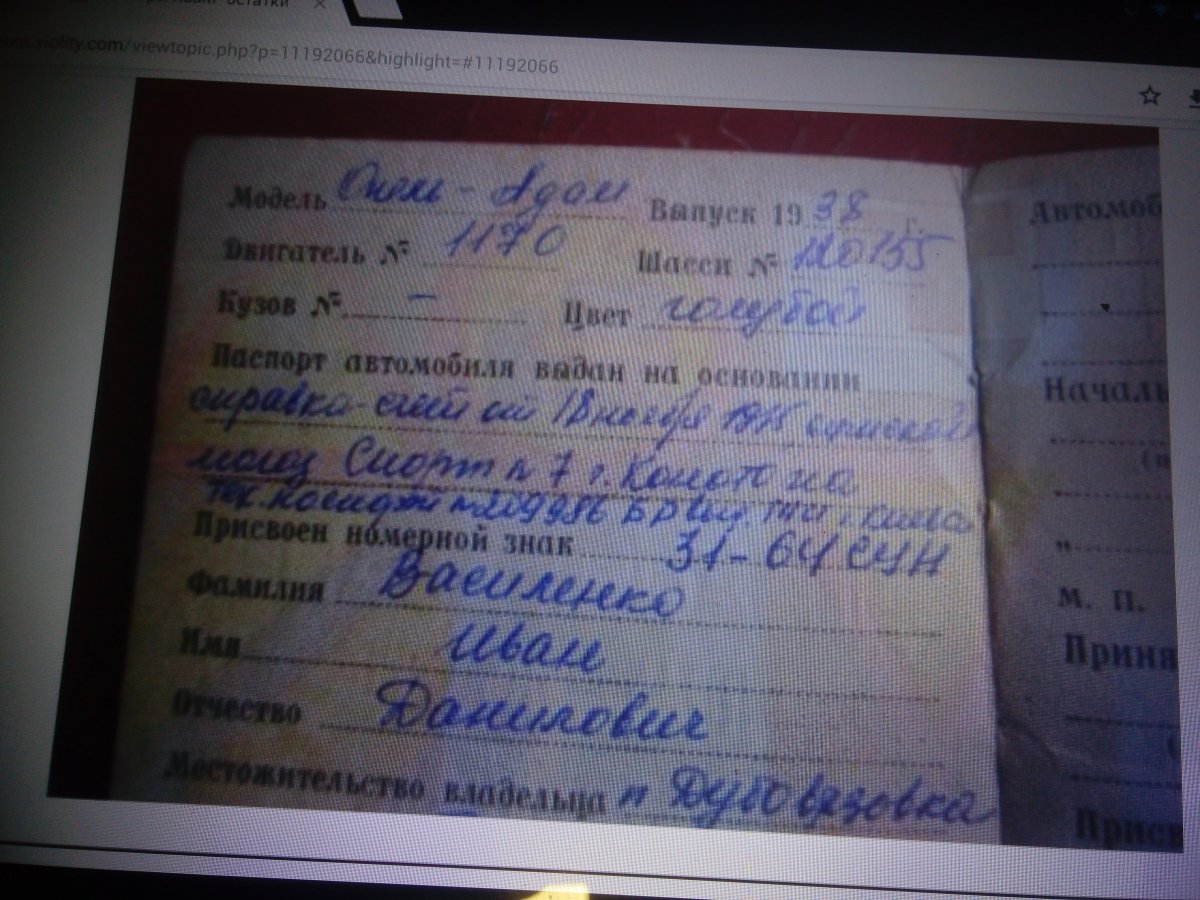 остатки
violity.com/viewtopic.php?p=11192066&highlight=#11192066
Модель Опель - Адам Выпуск 19 38 г.
Двигатель № 1170 Шасси № 120155
Кузов № - Цвет голубой
Паспорт автомобиля выдан на основании
справка-счет от 18 1975
магаз Спорт 7 г. Конотопа
Присвоен номерной знак 31-64 СУН
Фамилия Василенко
Имя Иван
Отчество Данилович
Местожительство владельца п Дубовязовка
Автомоб
Началь
М. П.
Приня
Присв